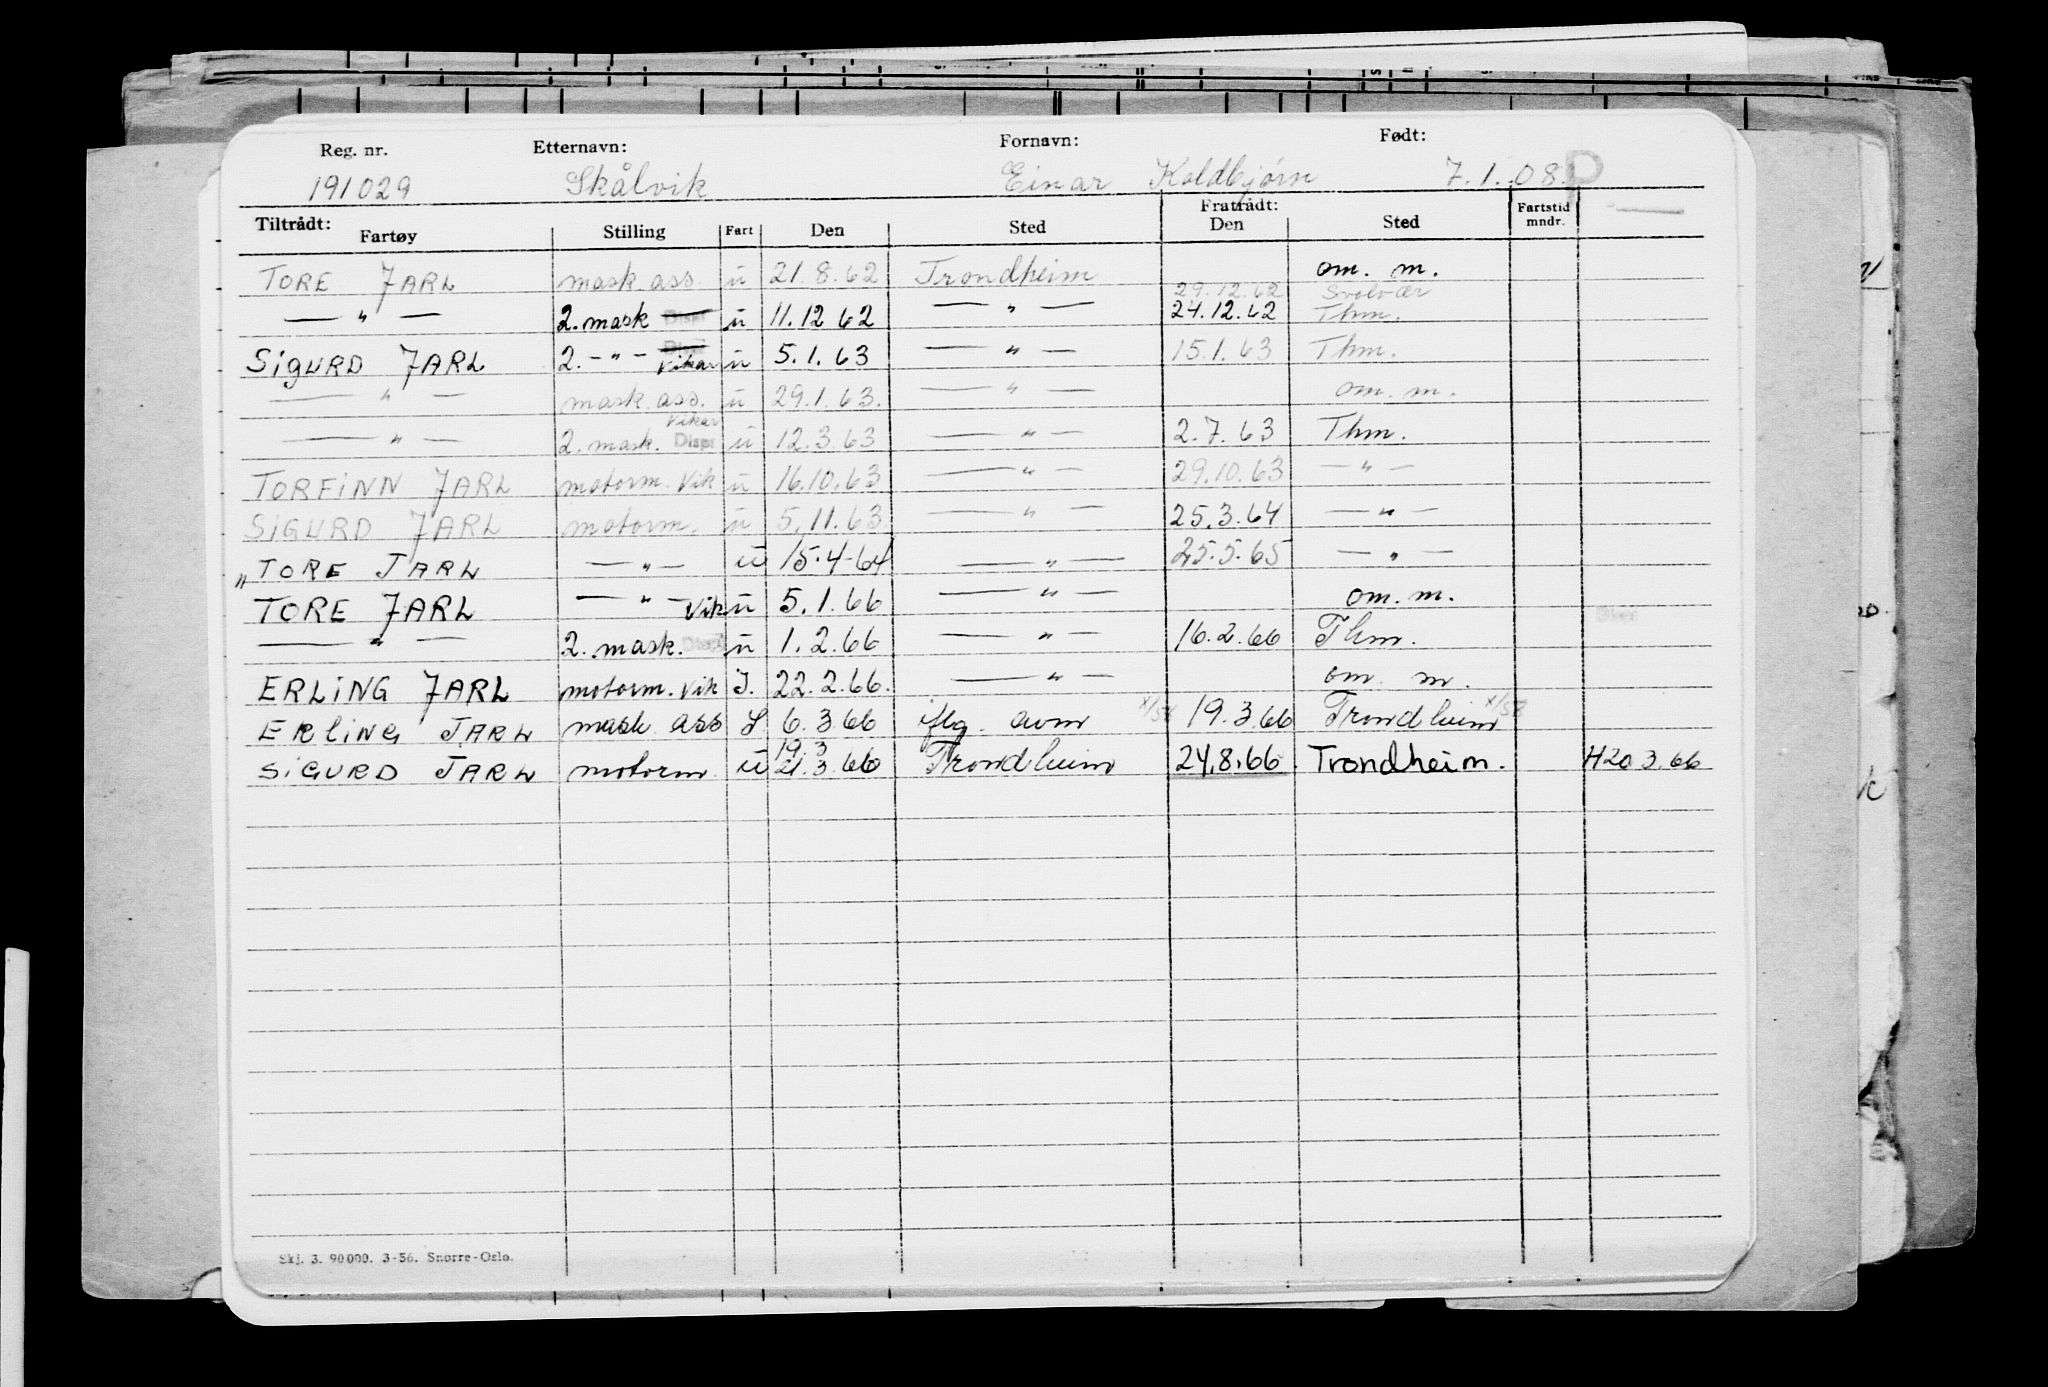 Reg. nr. Etternavn: Fornavn: Født:
191029 Skålvik Einar Koldbjørn 7.1.08. P
Tiltrådt: Fratrådt: Fartstid
Fartøy Stilling Fart Den Sted Den Sted mndr.
TORE JARL mask. ass. u 21.8.62 Trondheim om. m.
29.12.62 Svolvær
— " — 2. mask Disp u 11.12 62 — " — 24.12.62 Thm.
SIGURD JARL 2. - " - Disp Vikar u 5.1.63 — " — 15.1.63 Thm.
— " — mask. ass. u 29.1.63. — " — om. m.
— " — 2. mask. Vikar Disp u 12.3.63 — " — 2.7.63 Thm.
TORFINN JARL motorm. Vik u 16.10.63 — " — 29.10.63 — " —
SIGURD JARL motorm. u 5.11.63 — " — 25.3.64 — " —
" TORE JARL — " — u 15-4-64 — " — 25.5.65 — " —
TORE JARL — " — Vik u 5.1.66 — " — om. m.
— " — 2. mask. Disp u 1.2.66 — " — 16.2.66 Thm.
ERLING JARL motorm. Vik J. 22.2.66. — " — om. m.
ERLING JARL mask ass J 6.3.66 iflg. avm x/58 19.3.66 Trondheim x/58
SIGURD JARL motorm u 19.3 21.3.66 Trondheim 24.8.66. Trondheim. H20 3.66
Skj. 3. 90000. 3-56. Snorre-Oslo.